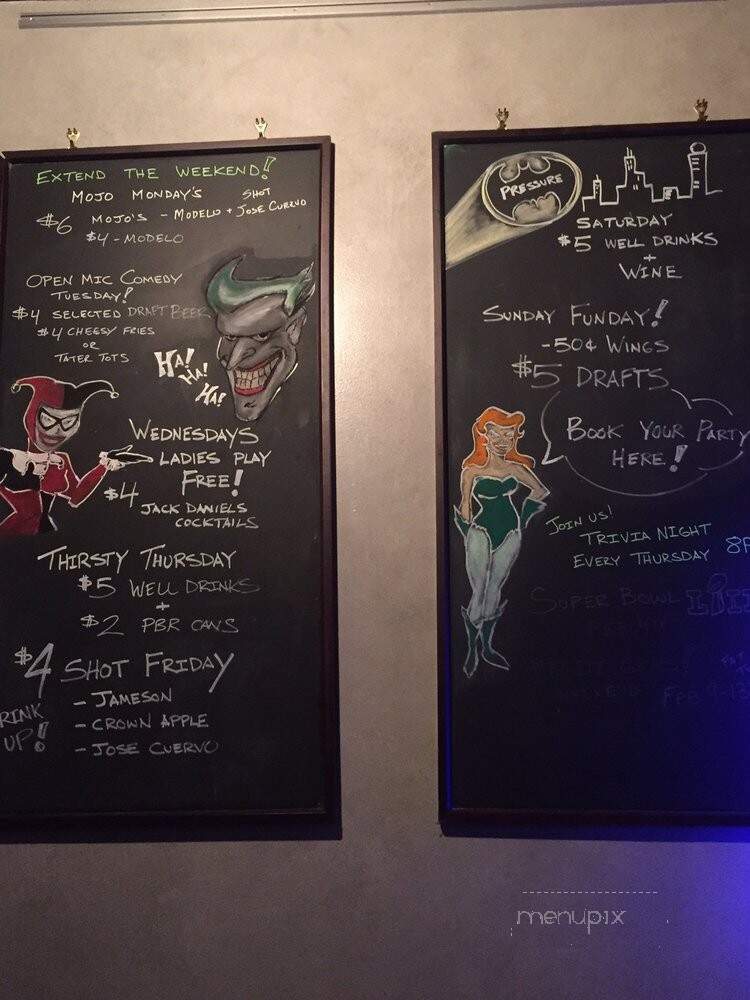 EXTEND THE WEEKEND!
MOJO MONDAY'S
$6 MOJO'S - MODELO + JOSE CUERVO SHOT
$4 - MODELO
OPEN MIC COMEDY
TUESDAY!
$4 SELECTED DRAFT BEER
$4 CHEESY FRIES
OR
TATER TOTS
HA!
HA!
HA!
WEDNESDAYS
LADIES PLAY
FREE!
$4 JACK DANIELS
COCKTAILS
THIRSTY THURSDAY
$5 WELL DRINKS
+
$2 PBR CANS
$4 SHOT FRIDAY
- JAMESON
- CROWN APPLE
- JOSE CUERVO
RINK
UP!
PRESSURE
SATURDAY
$5 WELL DRINKS
+
WINE
SUNDAY FUNDAY!
-50¢ WINGS
$5 DRAFTS
BOOK YOUR PARTY
HERE!
JOIN US!
TRIVIA NIGHT
EVERY THURSDAY 8P
SUPER BOWL
FEB
menupix